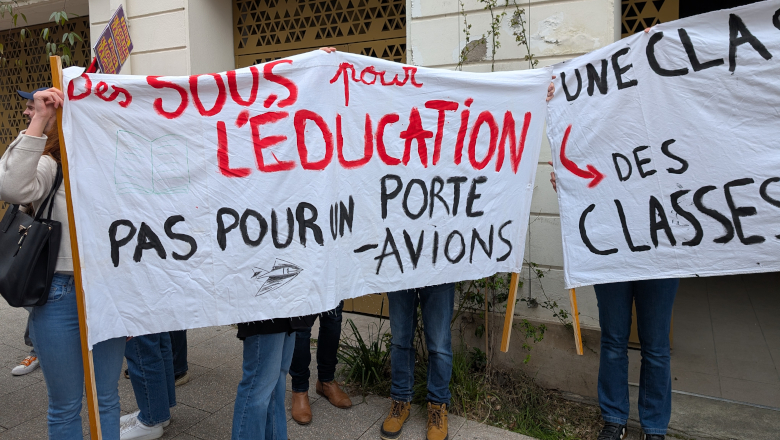 Des SOUS pour
L'ÉDUCATION
PAS POUR UN PORTE
-AVIONS
UNE CLAS
DES
CLASSES